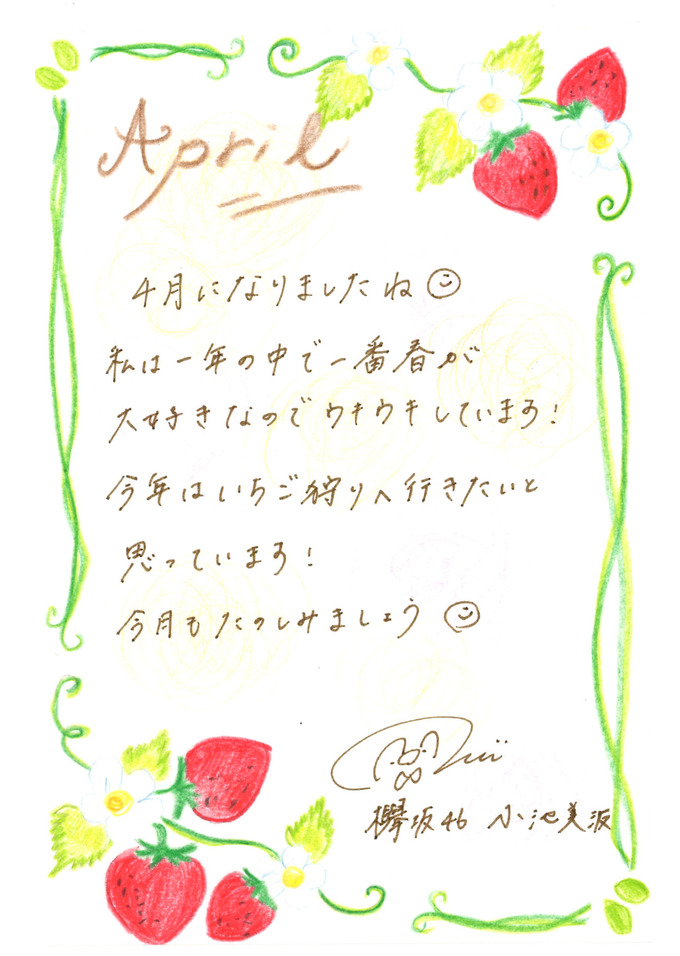 April
4月になりましたね
私は一年の中で一番春が
大好きなのでウキウキしています!
今年はいちご狩りへ行きたいと
思っています!
今月もたのしみましょう
欅坂46 小池美波